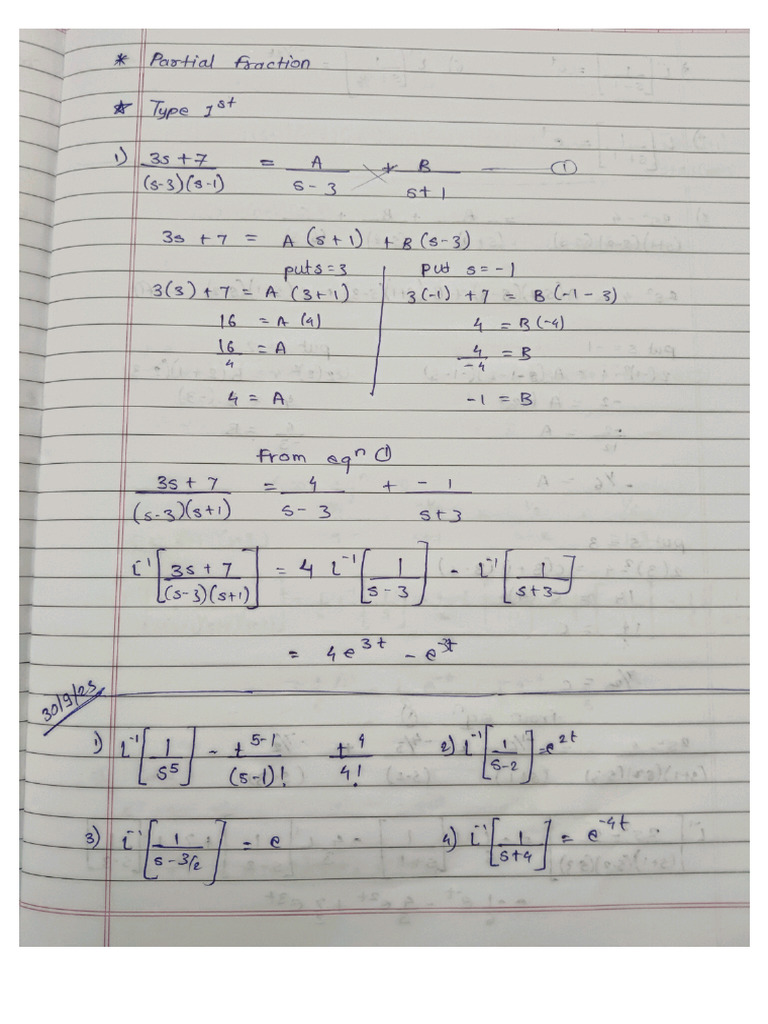 * Partial fraction
* Type 1st
1) 3s+7 / (s-3)(s-1) = A / s-3 + B / s+1 —— ①
3s + 7 = A (s+1) + B (s-3)
put s=3 put s=-1
3(3)+7 = A (3+1) 3(-1) +7 = B(-1-3)
16 = A (4) 4 = B(-4)
16/4 = A 4/-4 = B
4 = A -1 = B
From eqn ①
3s+7 / (s-3)(s+1) = 4 / s-3 + -1 / s+3
L⁻¹[3s+7 / (s-3)(s+1)] = 4 L⁻¹[1 / s-3] - L⁻¹[1 / s+3]
= 4e^3t - e^-3t
30/9/25
1) L⁻¹[1 / s^5] - t^5-1 / (s-1)! t^4 / 4! 2) L⁻¹[1 / s-2] = e^2t
3) L⁻¹[1 / s-3/2] = e 4) L⁻¹[1 / s+4] = e^-4t